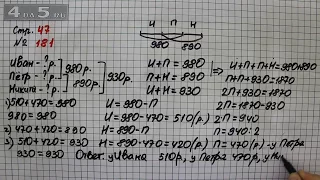 4a5.ru
Стр. 47
№ 181
Иван - ?р.
Пётр - ?р. 980р.
Никита - ?р. 890р. 930р.
1) 510+470=980
980=980
2) 470+420=890
3) 510+420=930
930=930
И П Н
980 890
И+П=980
П+Н=890
И+Н=930
И=980-П
Н=890-П
Н=890-470=420(р.)
И=980-П=510(р.)
⇒ И+П+П+Н=980+890
П+П+930=1870
2П+930=1870
2П=1870-930
2П=940
П=940:2
П=470(р.)-у Петра
Ответ: у Ивана 510р, у Петра 470р, у Ни